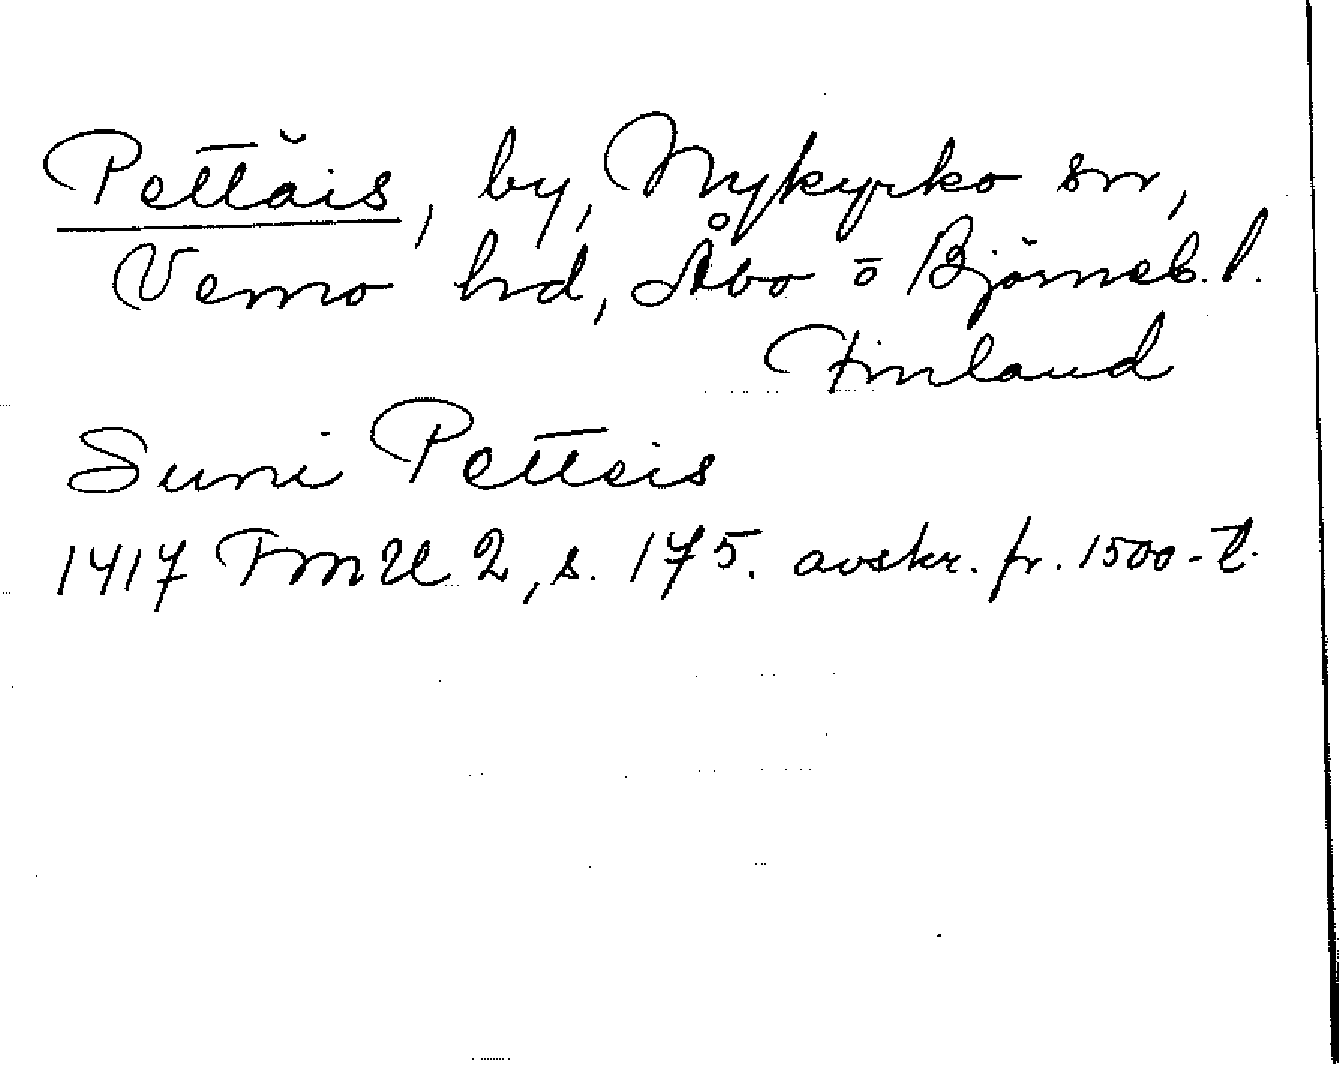 Pettäis, by, Nykyrko sn,
Vemo hd, Åbo o Björneb. l.
Finland
Suni Petteis
1417 FMU 2, s. 175. avskr. fr. 1500-t.